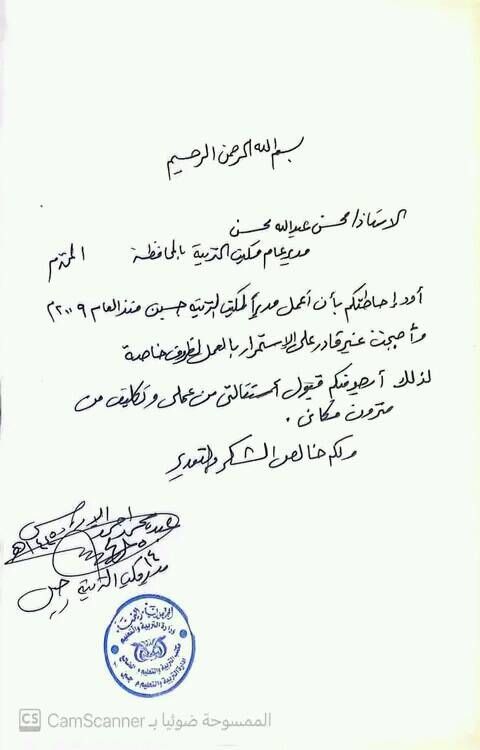 بسم الله الرحمن الرحيم
الاستاذ/ محسن عبدالله محسن
مدير عام مكتب التربية بالمحافظة المحترم
أود إحاطتكم بأن أعمل مديراً لمكتب التربية منذ العام ٢٠٠٩م
وأصبحت غير قادر على الإستمرار بالعمل لظروف خاصة
لذلك أرجو منكم قبول استقالتي من عملي وتكليف من
ترون مكاني.
ولكم خالص الشكر والتقدير
مدير مكتب التربية
الجمهورية اليمنية
وزارة التربية والتعليم
مكتب التربية والتعليم
CS CamScanner الممسوحة ضوئيا بـ